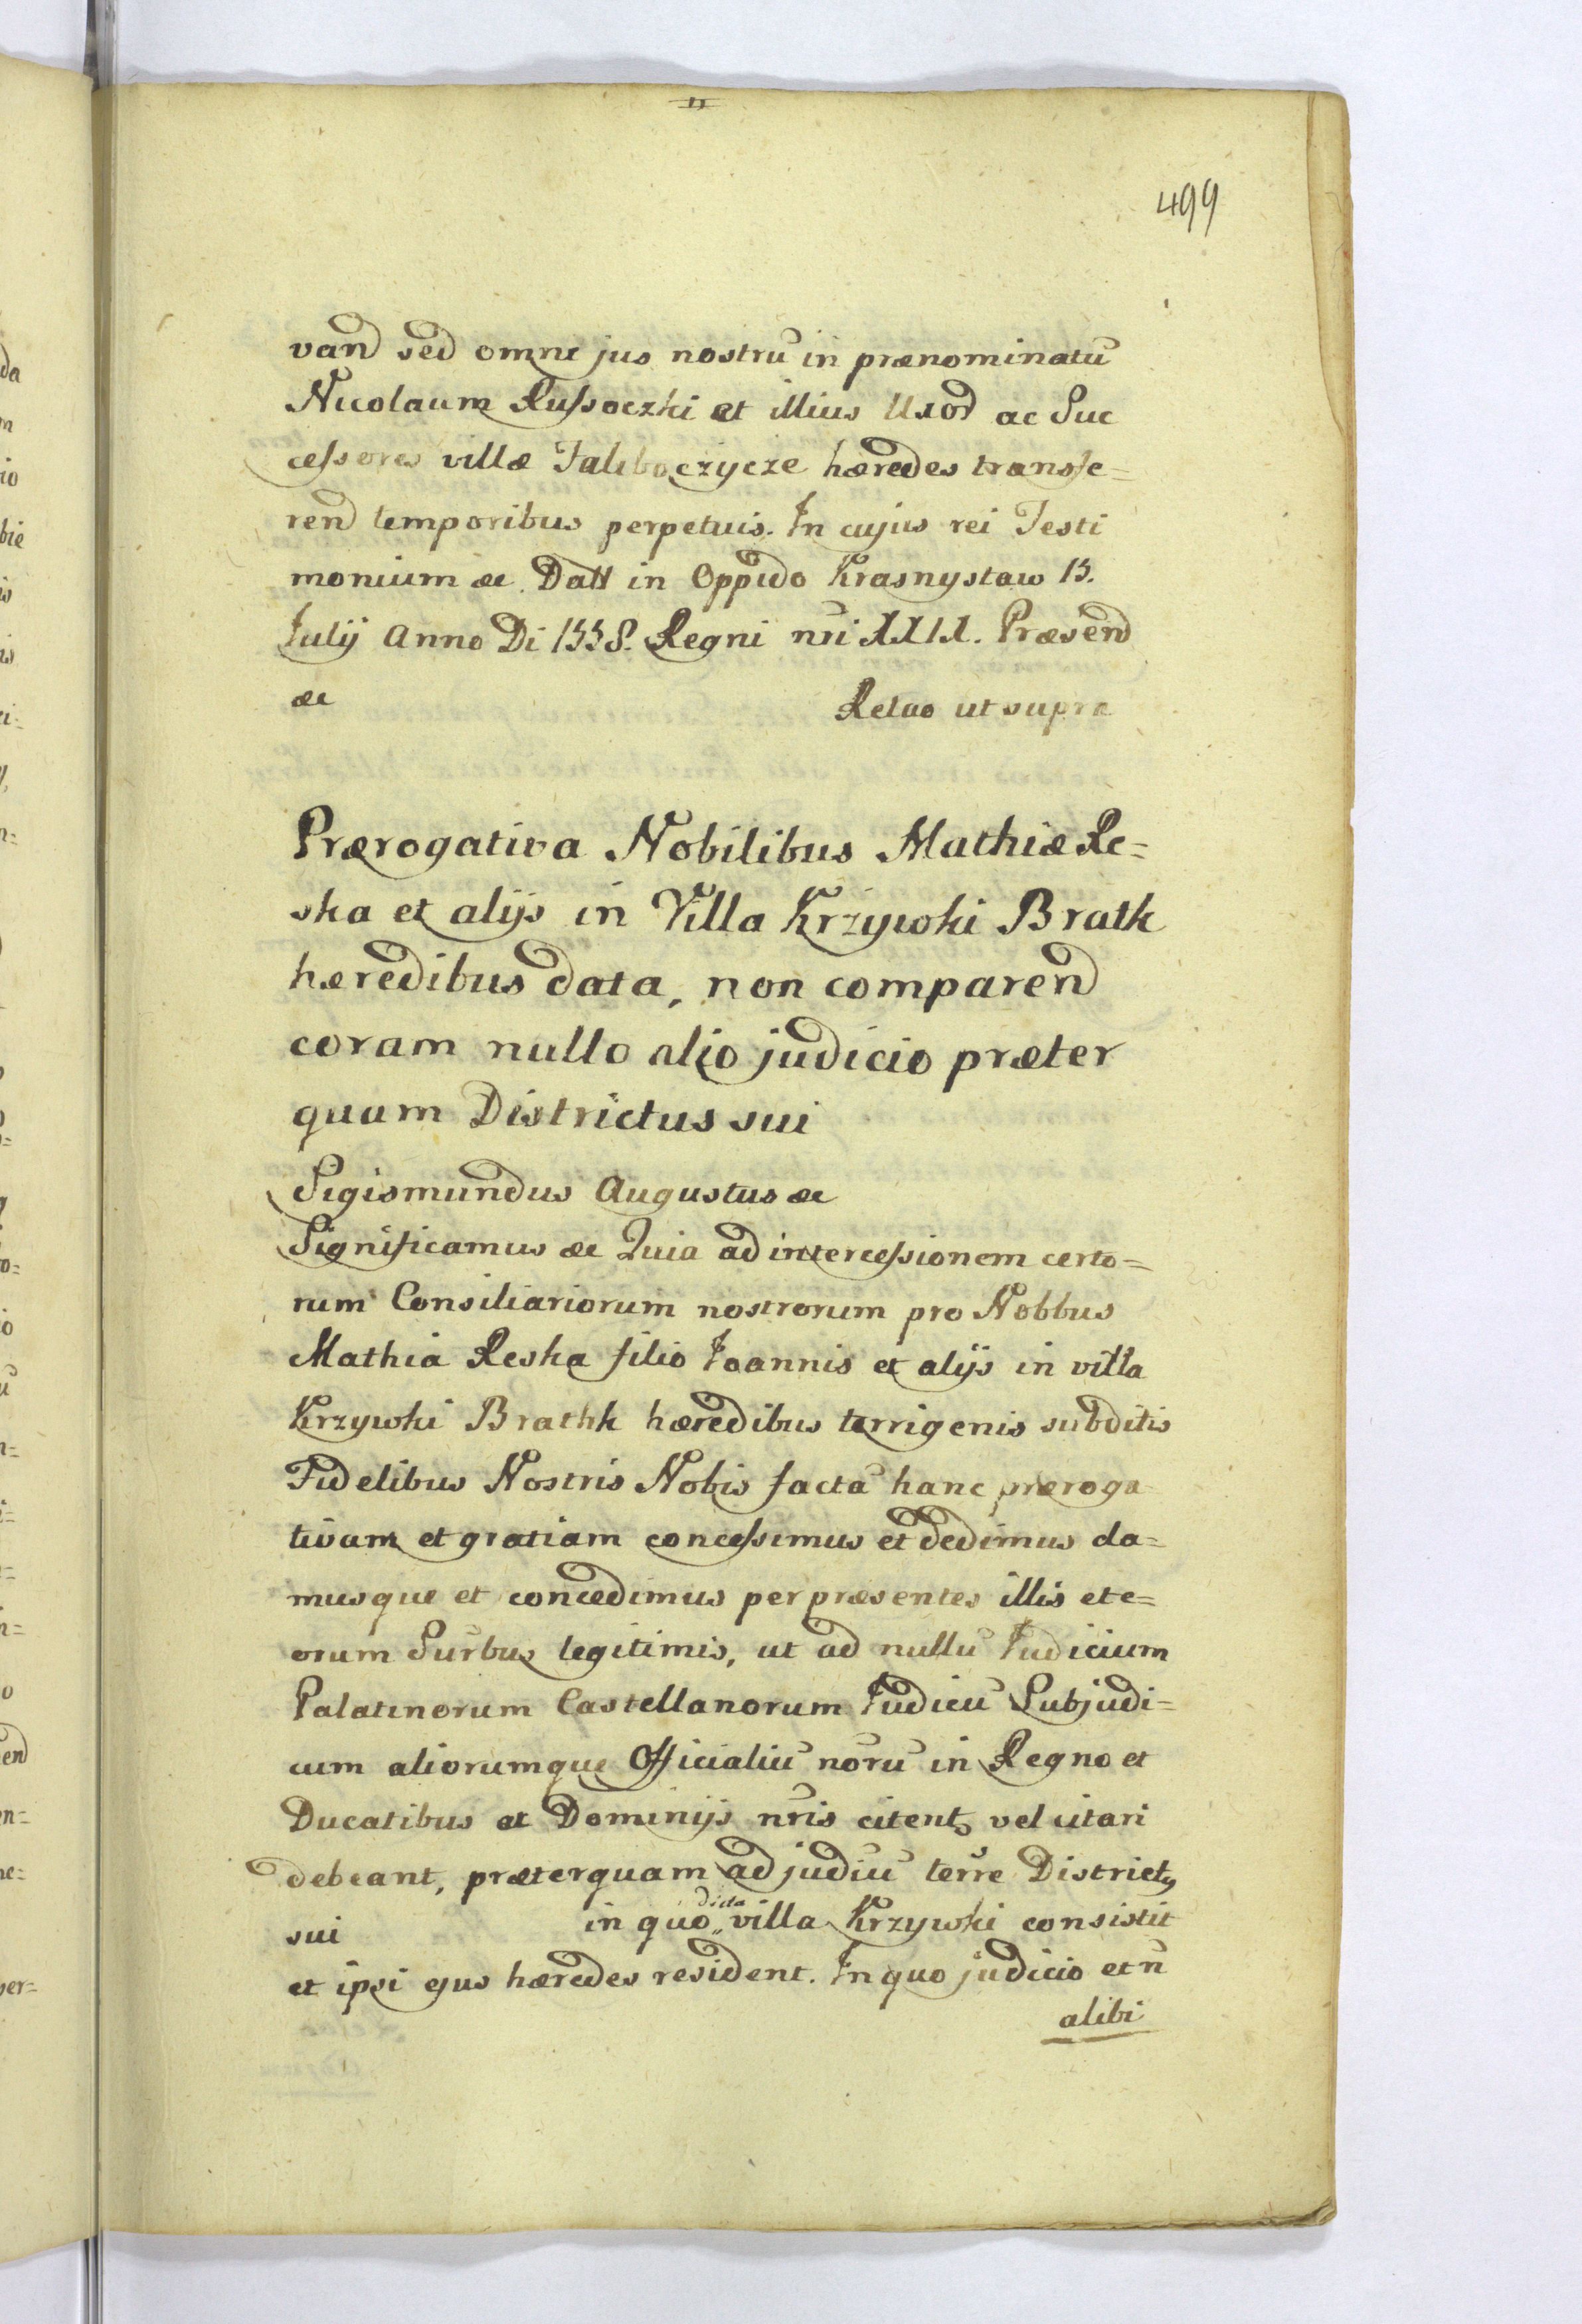 499
vand sed omne jus nostrū in prænominatū
Nicolaum Russoczki et illius Uxor ac Suc
cessores villæ Faliboczycze hæredes transfe=
rend temporibus perpetuis. In cujus rei Testi
monium &c. Datt in Oppido Krasnystaw 15.
Julij Anno Di 1558. Regni nri XXIX. Præsend
&c Relao ut supra
Prærogativa Nobilibus Mathiæ Re=
ska et alijs in Villa Krzywki Bratk
hæredibus data, non comparend
coram nullo alio judicio præter
quam Districtus sui
Sigismundus Augustus &c
Significamus &c Quia ad intercessionem certo=
rum Consiliariorum nostrorum pro Nobbus
Mathia Reska filio Joannis et alijs in villa
Krzywki Brathk hæredibus terrigenis subditis
Fidelibus Nostris Nobis factā hanc præroga
tivam et gratiam concessimus et dedimus da=
musque et concedimus per præsentes illis et e=
orum Surbus legitimis, ut ad nullū Judicium
Palatinorum Castellanorum Judicū Subjudi=
cum aliorumque Officialiū norū in Regno et
Ducatibus et Dominijs nris citent vel citari
debeant, præterquam ad judiū terre District9
sui in quo dicta villa Krzywki consistit
et ipsi ejus hæredes resident. In quo judicio et n
alibi